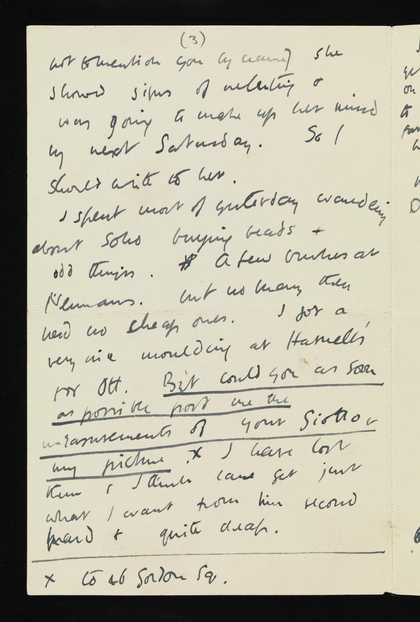 (3)
not to mention you by name) she
showed signs of relenting &
was going to make up her mind
by next Saturday. So I
should write to her.
I spent most of yesterday wandering
about Soho buying beads &
odd things. A few brushes at
Newmans. but no many they
had no cheap ones. I got a
very nice moulding at Harnell's
for Ott. But could you as soon
as possible post me the
measurements of your Giotto &
my picture. x I have lost
them & I think can get just
what I want from him second
hand & quite cheap.
x to 46 Gordon Sq.